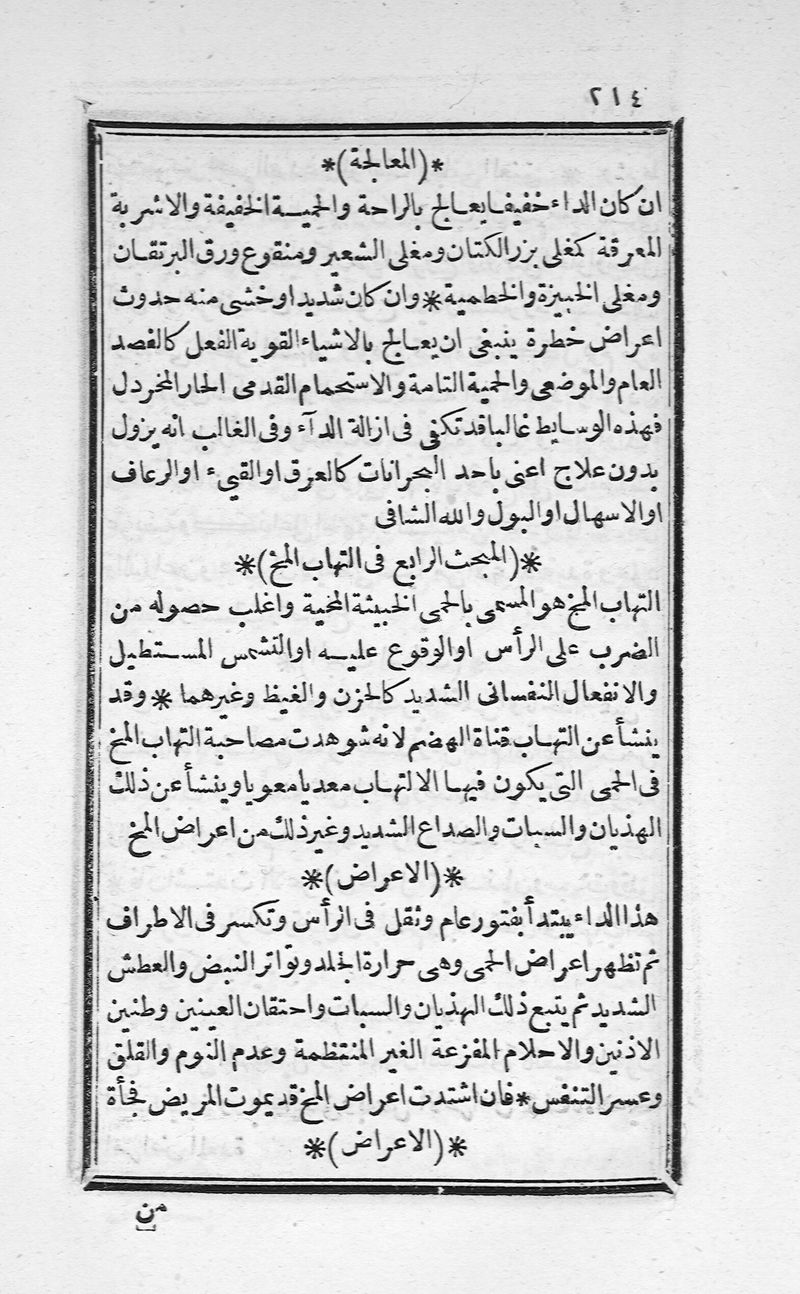 ٢١٤
*(المعالجة)*
ان كان الداء خفيفا يعالج بالراحة والحمية الخفيفة والاشربة
المعرقة كمغلى بزر الكتان ومغلى الشعير ومنقوع ورق البرتقان
ومغلى الخبيزة والخطمية * وان كان شديدا وخشى منه حدوث
اعراض خطرة ينبغى ان يعالج بالاشياء القوية الفعل كالفصد
العام والموضعى والحمية التامة والاستحمام القدمى الحار المخردل
فهذه الوسايط غالبا قد تكفى فى ازالة الدآء وفى الغالب انه يزول
بدون علاج اعنى باحد البحرانات كالعرق او القيىء او الرعاف
او الاسهال او البول والله الشافى
*(المبحث الرابع فى التهاب المخ)*
التهاب المخ هو المسمى بالحمى الخبيثة المخية واغلب حصوله من
الضرب على الرأس او الوقوع عليه او التشمس المستطيل
والانفعال النفسانى الشديد كالحزن والغيظ وغيرهما * وقد
ينشأ عن التهاب قناة الهضم لانه شوهدت مصاحبة التهاب المخ
فى الحمى التى يكون فيها الالتهاب معديا معويا وينشأ عن ذلك
الهذيان والسبات والصداع الشديد وغير ذلك من اعراض المخ
*(الاعراض)*
هذا الداء يبتدأ بفتور عام وثقل فى الرأس وتكسر فى الاطراف
ثم تظهر اعراض الحمى وهى حرارة الجلد وتواتر النبض والعطش
الشديد ثم يتبع ذلك الهذيان والسبات واحتقان العينين وطنين
الاذنين والاحلام المفزعة الغير المنتظمة وعدم النوم والقلق
وعسر التنفس * فان اشتدت اعراض المخ قد يموت المريض فجأة
*(الاعراض)*
من